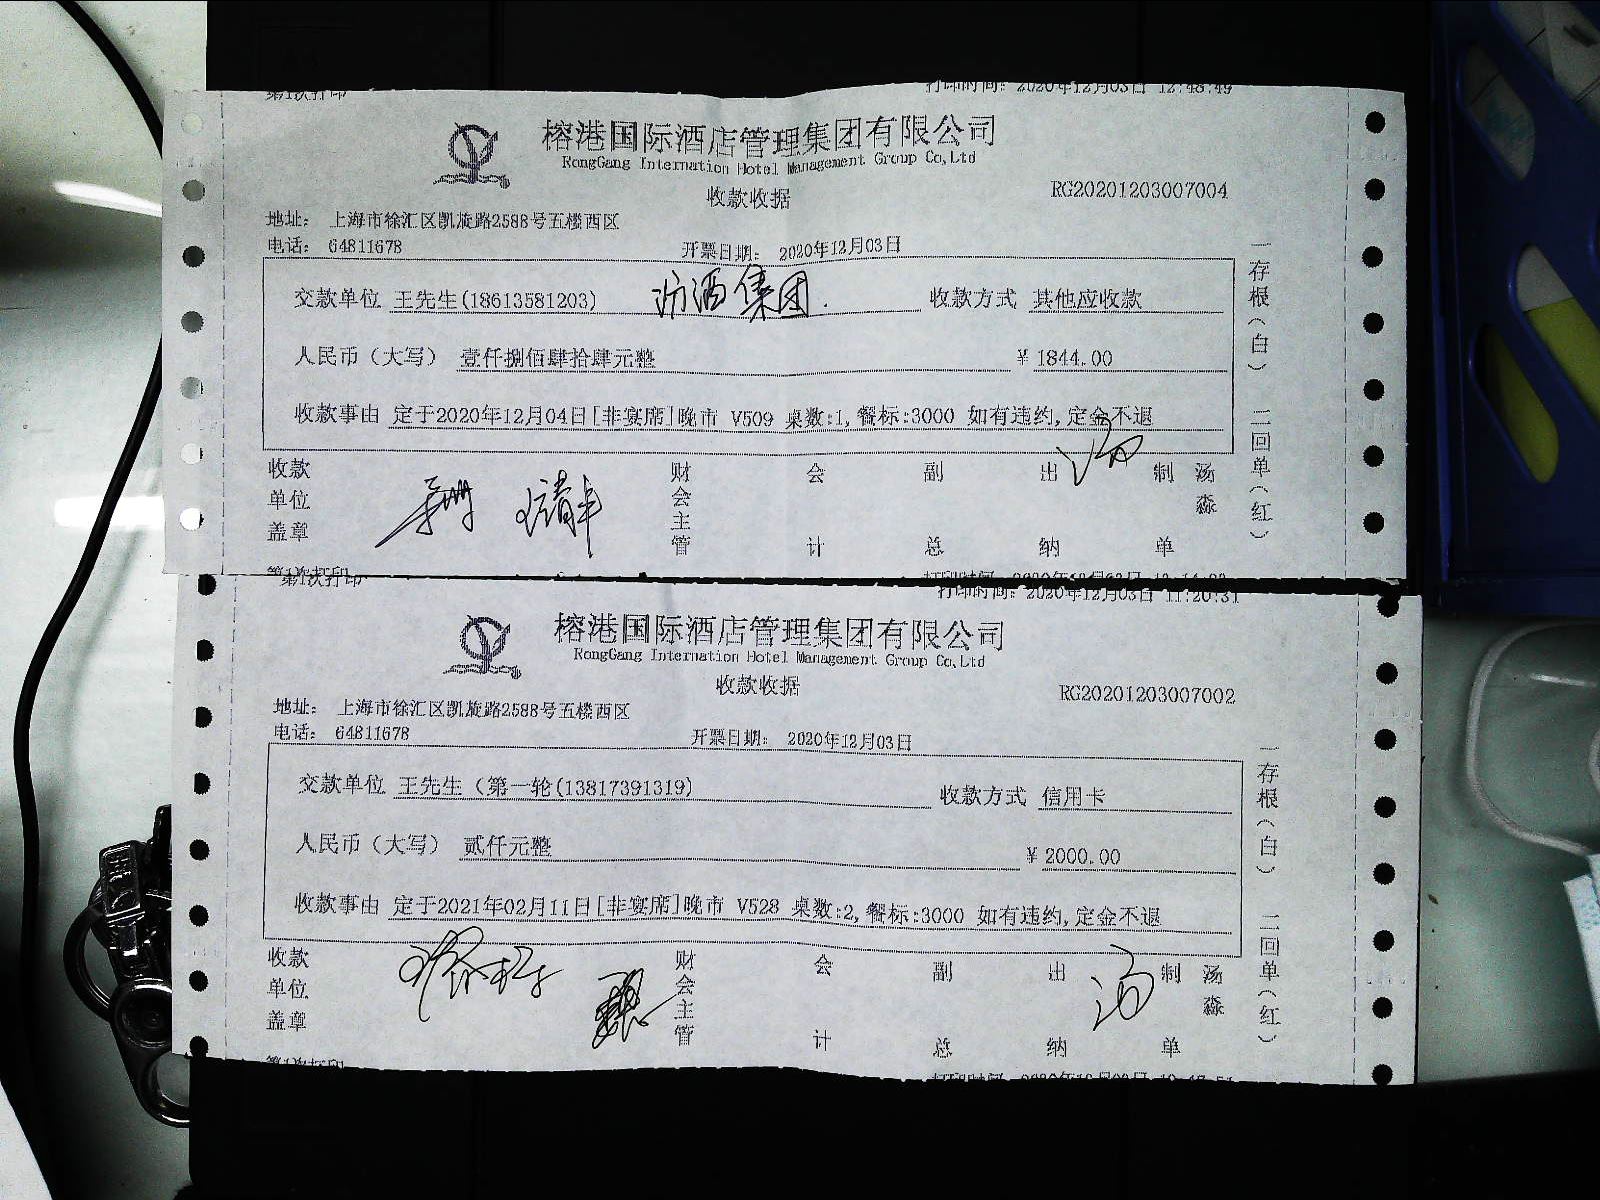 第1次打印
打印时间: 2020年12月03日 12:48:49
榕港国际酒店管理集团有限公司
RongGang Internation Hotel Management Group Co,Ltd
收款收据
RG20201203007004
地址: 上海市徐汇区凯旋路2588号五楼西区
电话: 64811678 开票日期: 2020年12月03日
交款单位 王先生(18613581203) 收款方式 其他应收款
人民币(大写) 壹仟捌佰肆拾肆元整 ¥ 1844.00
收款事由 定于2020年12月04日[非宴席]晚市 V509 桌数:1,餐标:3000 如有违约,定金不退
收款单位盖章 财会主管 会计 副总 出纳 制单 汤淼
一存根(白) 二回单(红)
第1次打印
打印时间: 2020年12月03日 11:20:31
榕港国际酒店管理集团有限公司
RongGang Internation Hotel Management Group Co,Ltd
收款收据
RG20201203007002
地址: 上海市徐汇区凯旋路2588号五楼西区
电话: 64811678 开票日期: 2020年12月03日
交款单位 王先生(第一轮(13817391319) 收款方式 信用卡
人民币(大写) 贰仟元整 ¥ 2000.00
收款事由 定于2021年02月11日[非宴席]晚市 V528 桌数:2,餐标:3000 如有违约,定金不退
收款单位盖章 财会主管 会计 副总 出纳 汤 制单 汤淼
一存根(白) 二回单(红)